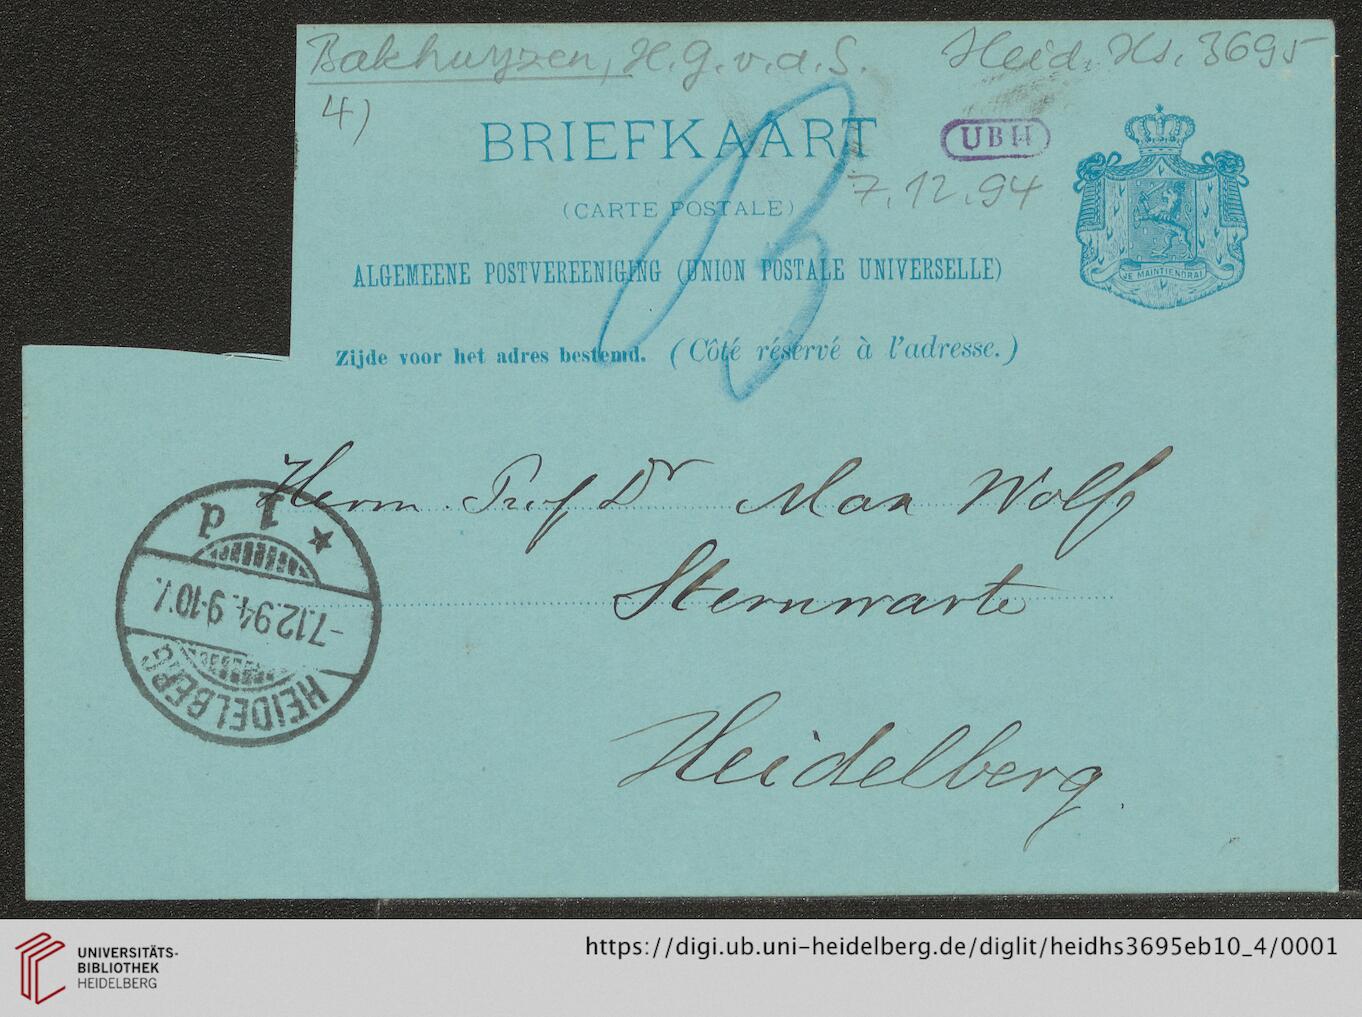 Bakhuyzen, H.G.v.d.S. Heid. Hs. 3695
4)
BRIEFKAART
UBH
(CARTE POSTALE)
7.12.94
ALGEMEENE POSTVEREENIGING (UNION POSTALE UNIVERSELLE)
JE MAINTIENDRAI
Zijde voor het adres bestemd. (Côté réservé à l'adresse.)
B
Herrn Prof Dr Max Wolf
Sternwarte
Heidelberg.
HEIDELBERG
-7.12.94. 9-10V.
UNIVERSITÄTS-
BIBLIOTHEK
HEIDELBERG
https://digi.ub.uni-heidelberg.de/diglit/heidhs3695eb10_4/0001